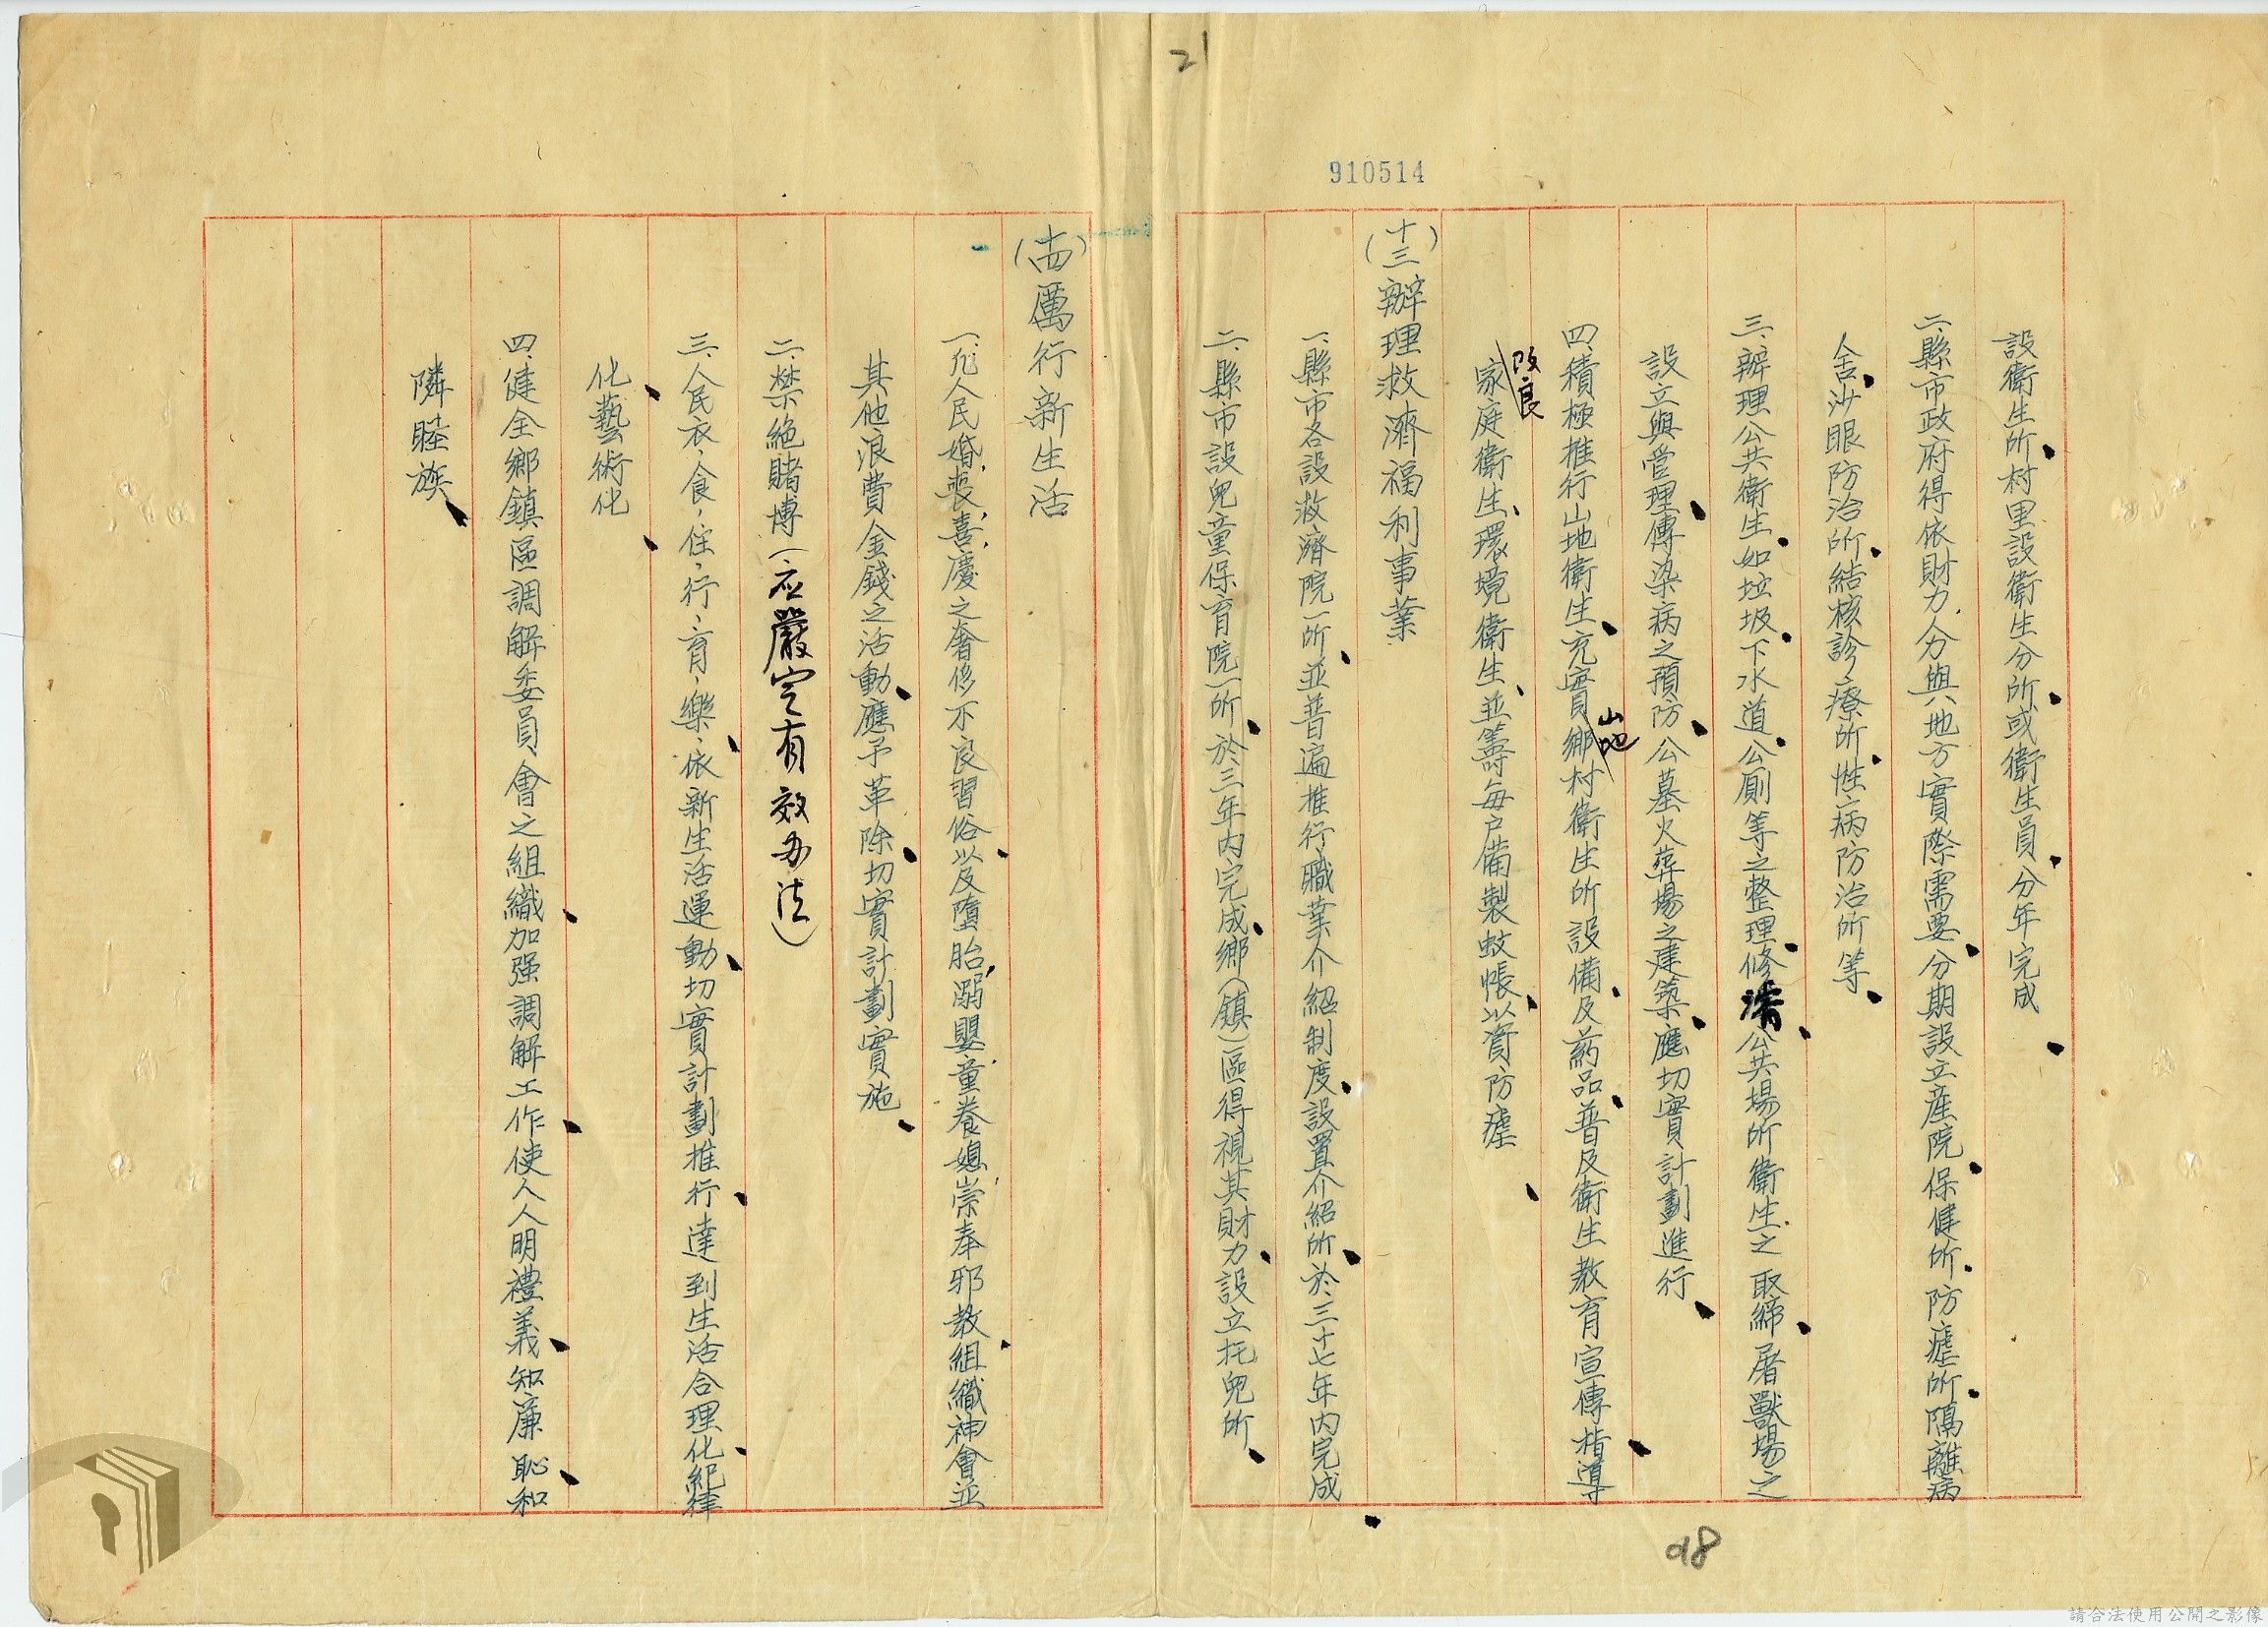 21
910514
設衛生所村里設衛生分所或衛生員分年完成
二、縣市政府得依財力人力與地方實際需要分期設立產院保健所、防瘧所隔離病
舍沙眼防治所結核診療所性病防治所等
三、辦理公共衛生如垃圾下水道公厠等之整理修濬公共場所衛生之取締屠獸場之
設立與管理傳染病之預防公墓火葬場之建築應切實計劃進行
四、積極推行山地衛生充實山地鄉村衛生所設備及葯品普及衛生教育宣傳指導
改良家庭衛生、環境衛生、並籌每戶備製蚊帳以資防瘧
(十三)辦理救濟福利事業
一、縣市各設救濟院一所並普遍推行職業介紹制度設置介紹所於三十七年內完成
二、縣市設兒童保育院一所於三年內完成鄉(鎮)區得視其財力設立托兒所
(十四)厲行新生活
一、凡人民婚、喪、喜、慶之奢侈不良習俗以及墮胎、溺嬰、童養媳、崇奉邪教組織神會並
其他浪費金錢之活動應予革除切實計劃實施
二、禁絕賭博(应嚴定有效办法)
三、人民衣、食、住、行、育、樂、依新生活運動切實計劃推行達到生活合理化紀律
化藝術化
四、健全鄉鎮區調解委員會之組織加强調解工作使人人明禮義知廉恥和
隣睦族
98
請合法使用公開之影像